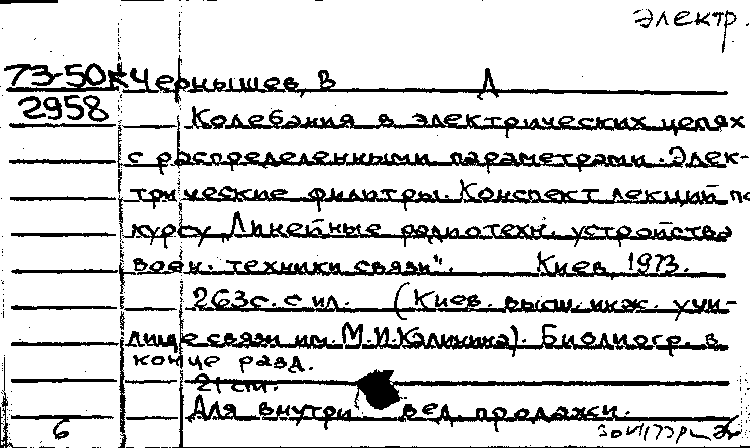 электр.
73-50к Чернышев, В А
2958
Колебания в электрических цепях
с распределенными параметрами. Элек-
трические фильтры. Конспект лекций по
курсу „Линейные радиотехн. устройства
воен. техники связи". Киев, 1973.
263с. с ил. (Киев. высш. инж. учи-
лище связи им. М.И.Калинина). Библиогр. в
конце разд.
21 см.
Для внутри вед. продажи.
6